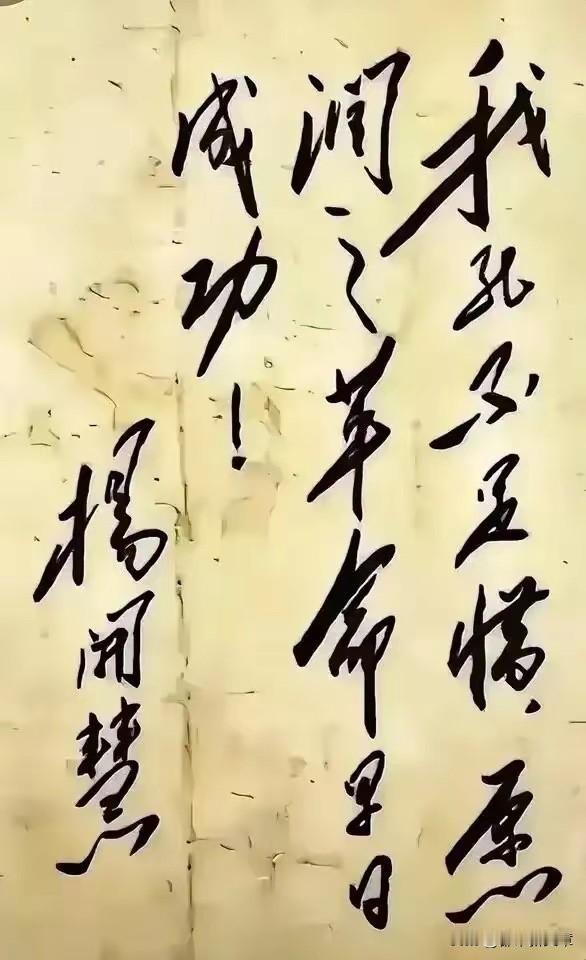 我死不足惜，愿
润之革命早日
成功！
楊開慧